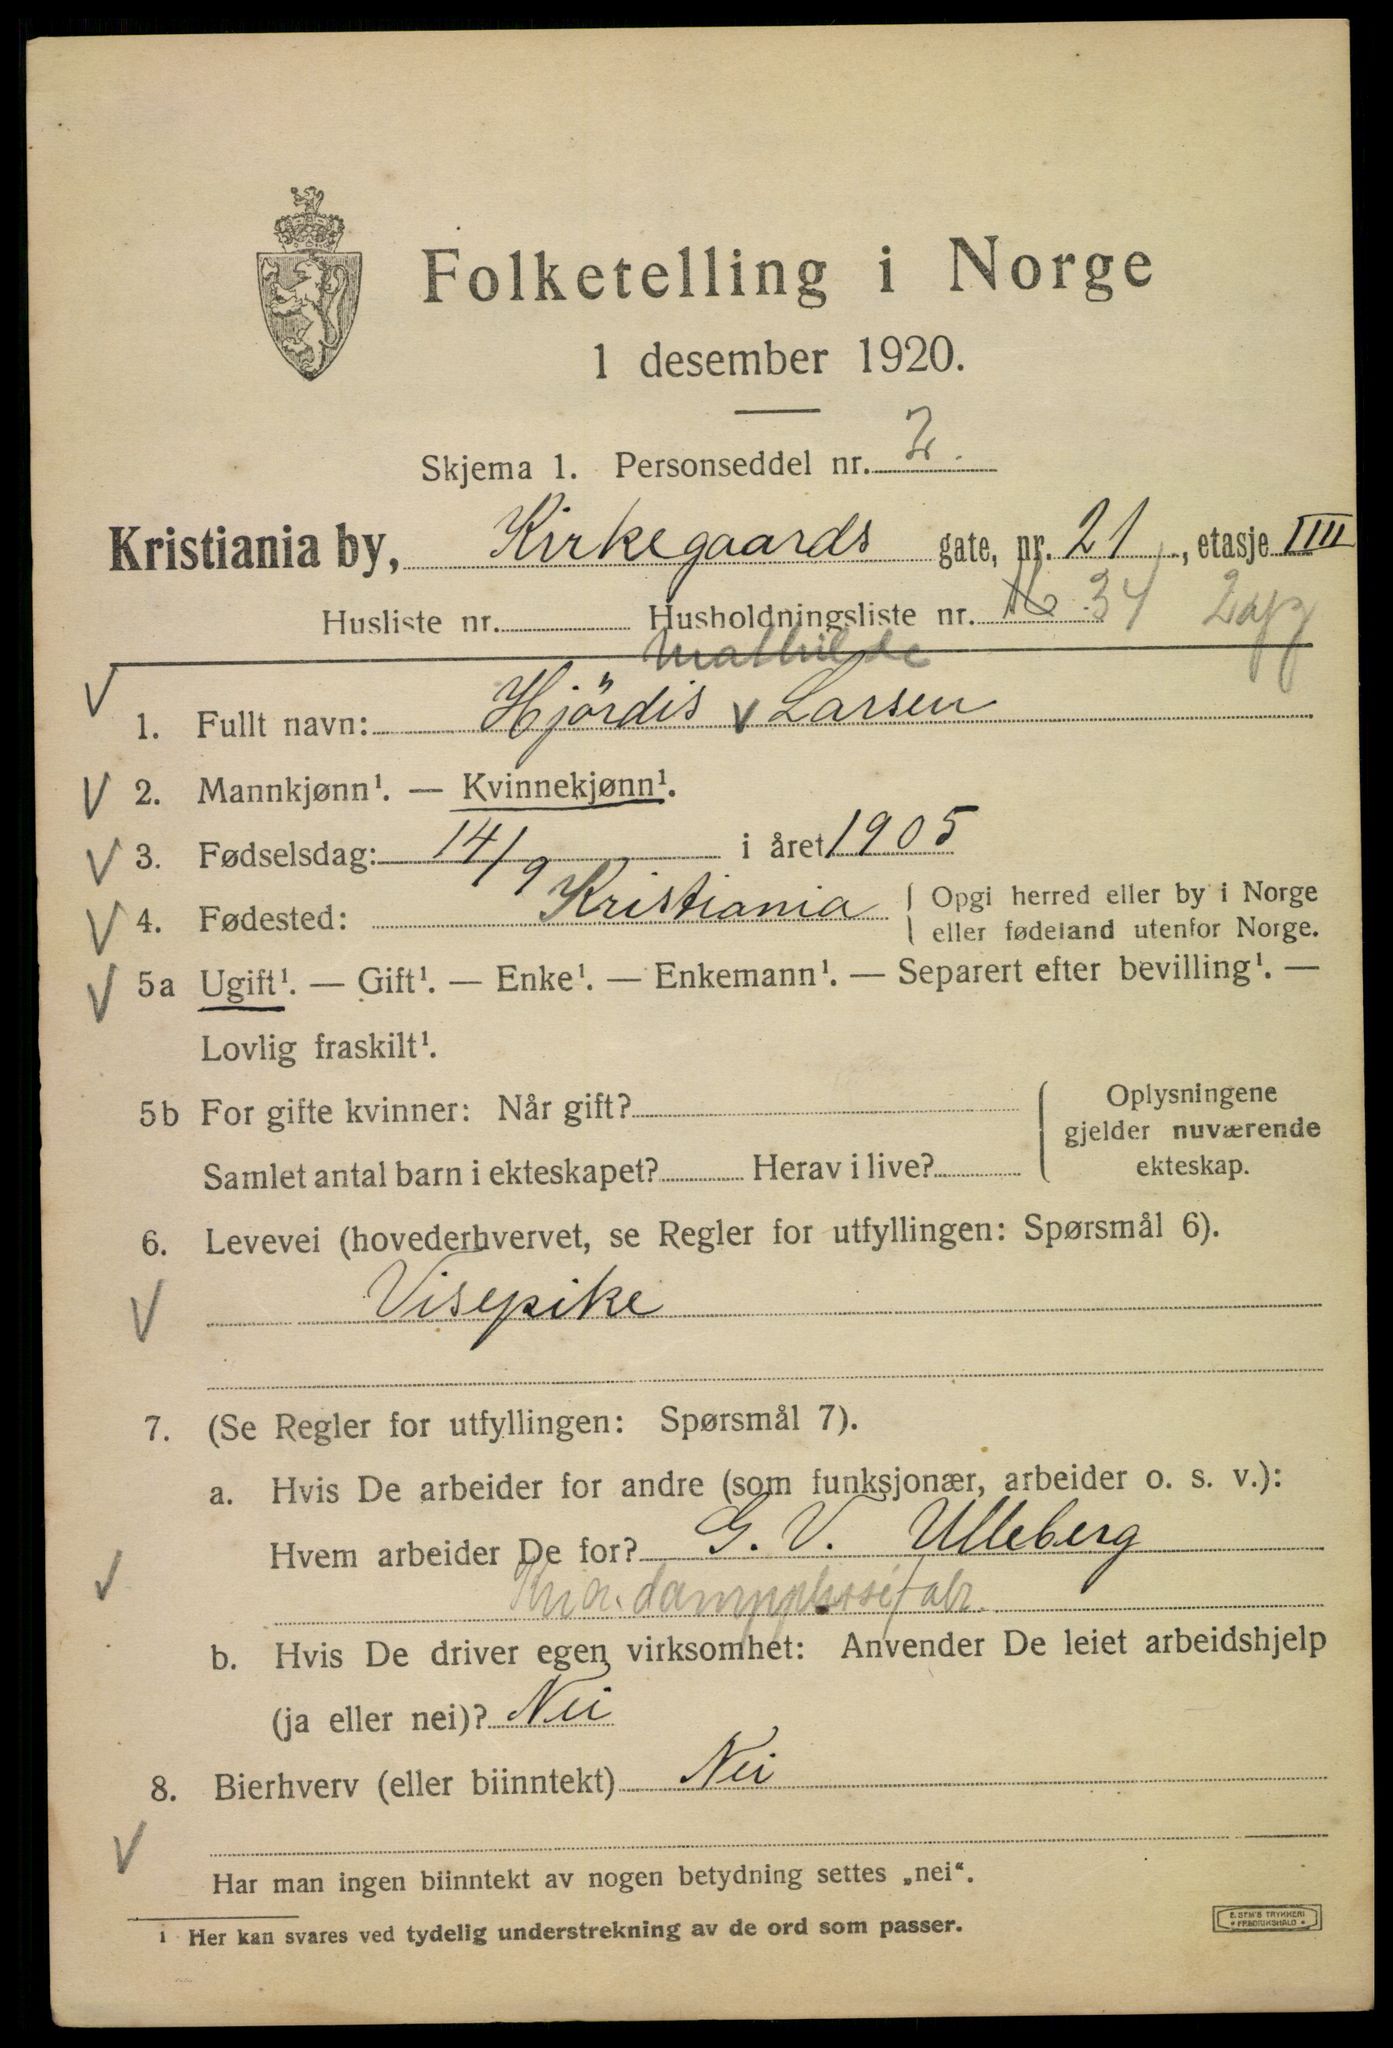 Folketelling i Norge
1 desember 1920.
Skjema 1. Personseddel nr. 2.
Kristiania by, Kirkegaards gate, nr. 21, etasje IIII
Husliste nr. Husholdningsliste nr. 16 34
Mathilde
1. Fullt navn: Hjördis v Larsen
2. Mannkjønn¹. — Kvinnekjønn¹.
3. Fødselsdag: 14/9 i året 1905
4. Fødested: Kristiania { Opgi herred eller by i Norge
eller fødeland utenfor Norge.
5a Ugift¹. — Gift¹. — Enke¹. — Enkemann¹. — Separert efter bevilling¹. —
Lovlig fraskilt¹.
5b For gifte kvinner: Når gift? { Oplysningene
gjelder nuværende
Samlet antal barn i ekteskapet? Herav i live? ekteskap.
6. Levevei (hovederhvervet, se Regler for utfyllingen: Spørsmål 6).
Visepike
7. (Se Regler for utfyllingen: Spørsmål 7).
a. Hvis De arbeider for andre (som funksjonær, arbeider o. s. v.):
Hvem arbeider De for? G. V. Ulleberg
Kria. dampplisséfabr.
b. Hvis De driver egen virksomhet: Anvender De leiet arbeidshjelp
(ja eller nei)? Nei
8. Bierhverv (eller biinntekt) Nei
Har man ingen biinntekt av nogen betydning settes „nei“.
1 Her kan svares ved tydelig understrekning av de ord som passer.
E. SEM'S TRYKKERI
• FREDRIKSHALD •